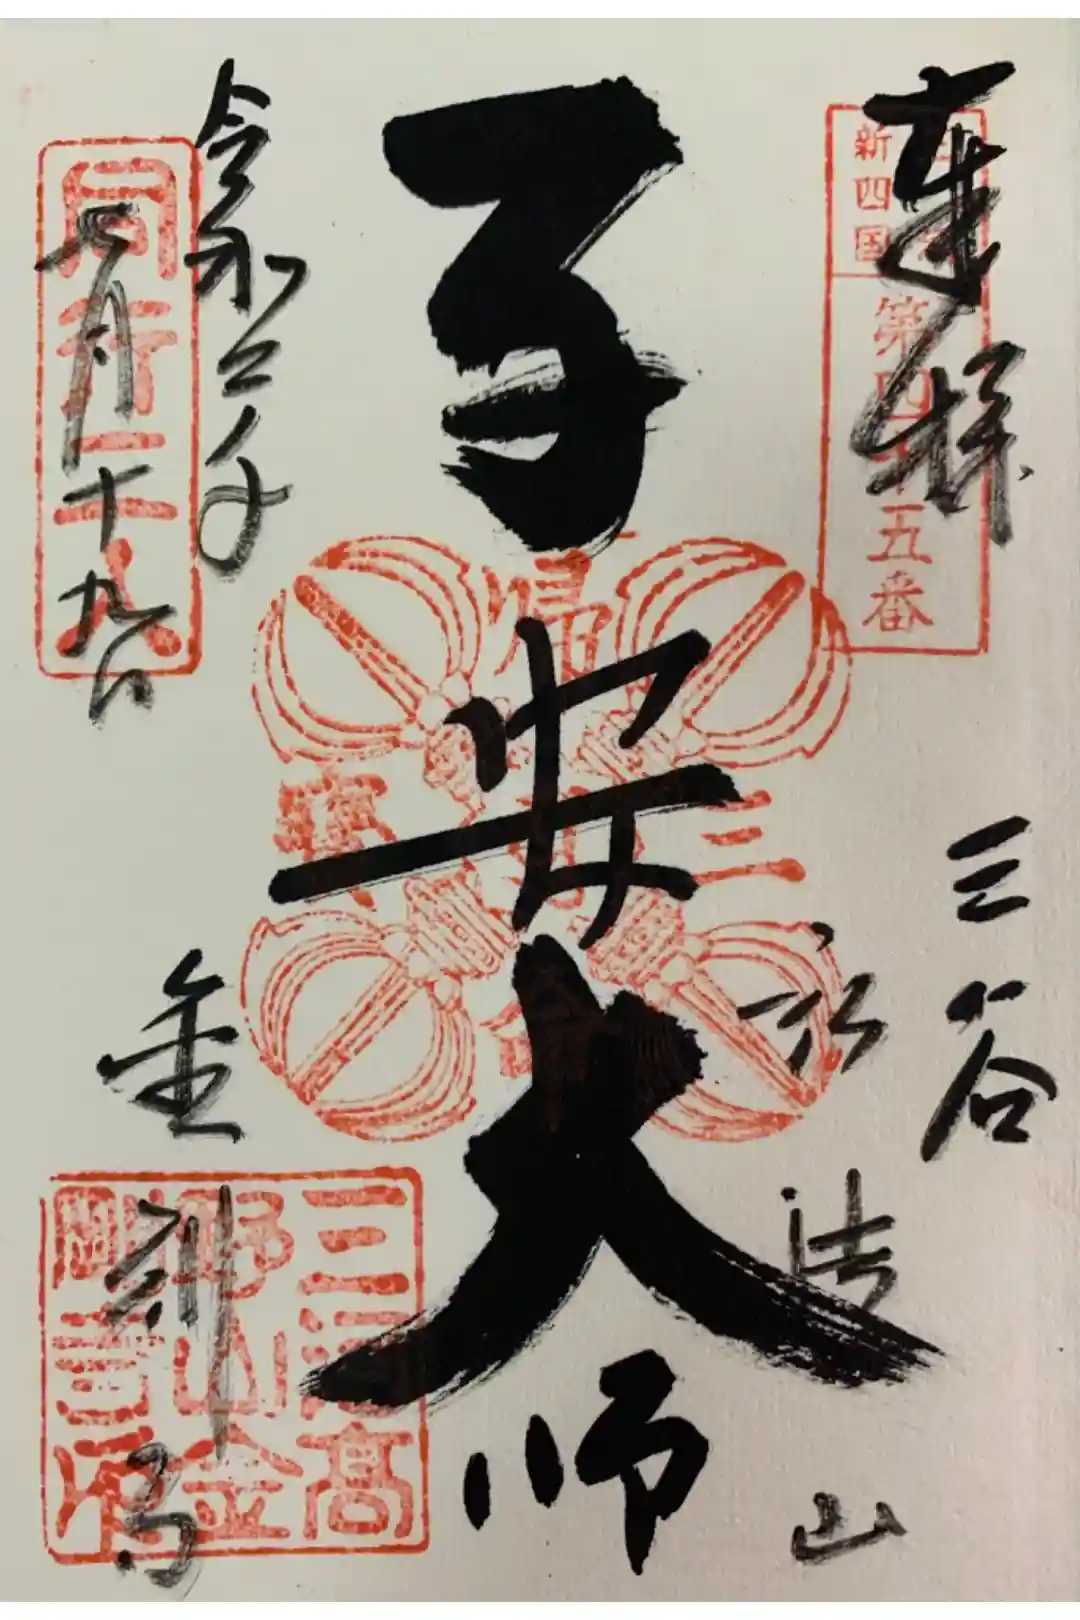 奉拝
新四国
第四十五番
三谷
弘法山
子安大師
令和二年
七月十九日
同行二人
金剛寺
三河高
野山金
剛寺印